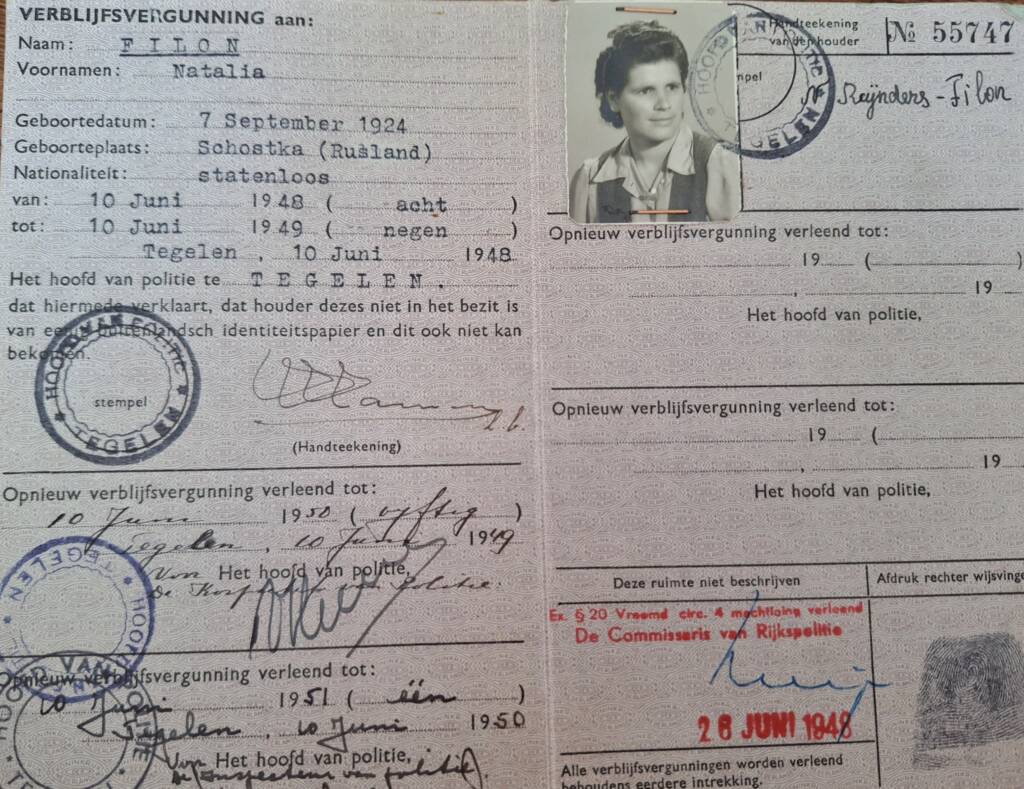 VERBLIJFSVERGUNNING aan:
Naam: FILON
Voornamen: Natalia
Geboortedatum: 7 September 1924
Geboorteplaats: Schostka (Rusland)
Nationaliteit: statenloos
van: 10 Juni 1948 ( acht )
tot: 10 Juni 1949 ( negen )
Tegelen , 10 Juni 1948
Het hoofd van politie te TEGELEN.
dat hiermede verklaart, dat houder dezes niet in het bezit is
van eenig buitenlandsch identiteitspapier en dit ook niet kan
bekomen.
HOOFD VAN POLITIE
stempel
TEGELEN
(Handteekening)
Opnieuw verblijfsvergunning verleend tot:
10 Juni 1950 ( vijftig )
Tegelen , 10 Juni 1949
Von Het hoofd van politie,
De van politie.
TEGELEN
HOOFD
Opnieuw verblijfsvergunning verleend tot:
10 Juni 1951 ( één )
Tegelen , 10 Juni 1950
Von Het hoofd van politie,
De Inspecteur van politie,
Handteekening
van den houder
№ 55747
HOOFD VAN POLITIE
TEGELEN
mpel
Reijnders-Filon
Opnieuw verblijfsvergunning verleend tot:
19 ( )
, 19
Het hoofd van politie,
Opnieuw verblijfsvergunning verleend tot:
19 (
, 19
Het hoofd van politie,
Deze ruimte niet beschrijven
Afdruk rechter wijsvinge
Ex. § 20 Vreemd circ. 4 machtiging verleend
De Commissaris van Rijkspolitie
26 JUNI 1948
Alle verblijfsvergunningen worden verleend
behoudens eerdere intrekking.